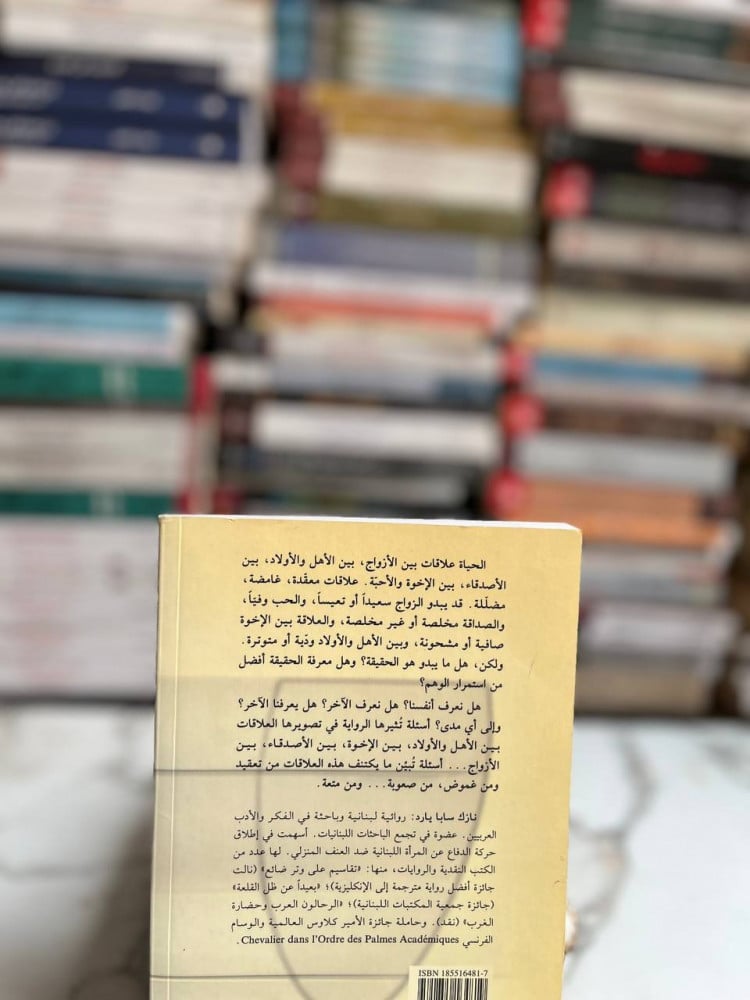 الحياة علاقات بين الأزواج، بين الأهل والأولاد، بين
الأصدقاء، بين الإخوة والأحبّة. علاقات معقّدة، غامضة،
مضلّلة. قد يبدو الزواج سعيداً أو تعيساً، والحب وفيّاً،
والصداقة مخلصة أو غير مخلصة، والعلاقة بين الإخوة
صافية أو مشحونة، وبين الأهل والأولاد ودّية أو متوترة.
ولكن، هل ما يبدو هو الحقيقة؟ وهل معرفة الحقيقة أفضل
من استمرار الوهم؟
هل نعرف أنفسنا؟ هل نعرف الآخر؟ هل يعرفنا الآخر؟
وإلى أي مدى؟ أسئلة تُثيرها الرواية في تصويرها العلاقات
بين الأهل والأولاد، بين الإخوة، بين الأصدقاء، بين
الأزواج... أسئلة تُبيّن ما يكتنف هذه العلاقات من تعقيد
ومن غموض، من صعوبة... ومن متعة.
نازك سابا يارد: روائية لبنانية وباحثة في الفكر والأدب
العربيين. عضوة في تجمع الباحثات اللبنانيات. أسهمت في إطلاق
حركة الدفاع عن المرأة اللبنانية ضد العنف المنزلي. لها عدد من
الكتب النقدية والروايات، منها: «تقاسيم على وتر ضائع» (نالت
جائزة أفضل رواية مترجمة إلى الإنكليزية)؛ «بعيداً عن ظل القلعة»
(جائزة جمعية المكتبات اللبنانية)؛ «الرحالون العرب وحضارة
الغرب» (نقد). وحاملة جائزة الأمير كلاوس العالمية والوسام
الفرنسي Chevalier dans l'Ordre des Palmes Académiques.
ISBN 185516481-7